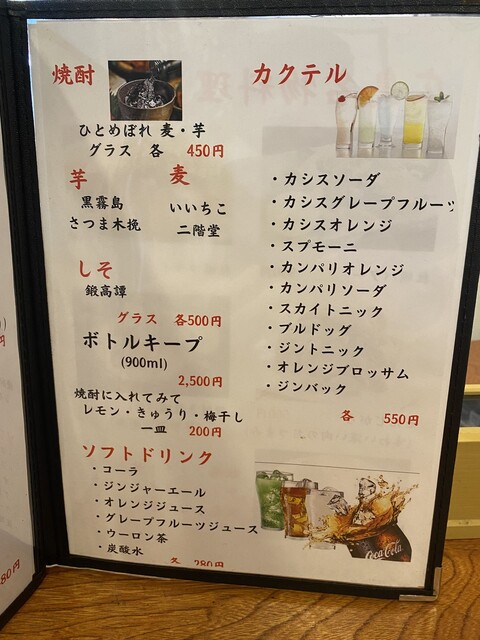 焼酎
ひとめぼれ 麦・芋
グラス 各 450円
芋 麦
黒霧島 いいちこ
さつま木挽 二階堂
しそ
鍛高譚
グラス 各500円
ボトルキープ
(900ml)
2,500円
焼酎に入れてみて
レモン・きゅうり・梅干し
一皿 200円
ソフトドリンク
・コーラ
・ジンジャーエール
・オレンジジュース
・グレープフルーツジュース
・ウーロン茶
・炭酸水
各 280円
カクテル
・カシスソーダ
・カシスグレープフルーツ
・カシスオレンジ
・スプモーニ
・カンパリオレンジ
・カンパリソーダ
・スカイトニック
・ブルドッグ
・ジントニック
・オレンジブロッサム
・ジンバック
各 550円
Coca-Cola
円
80円